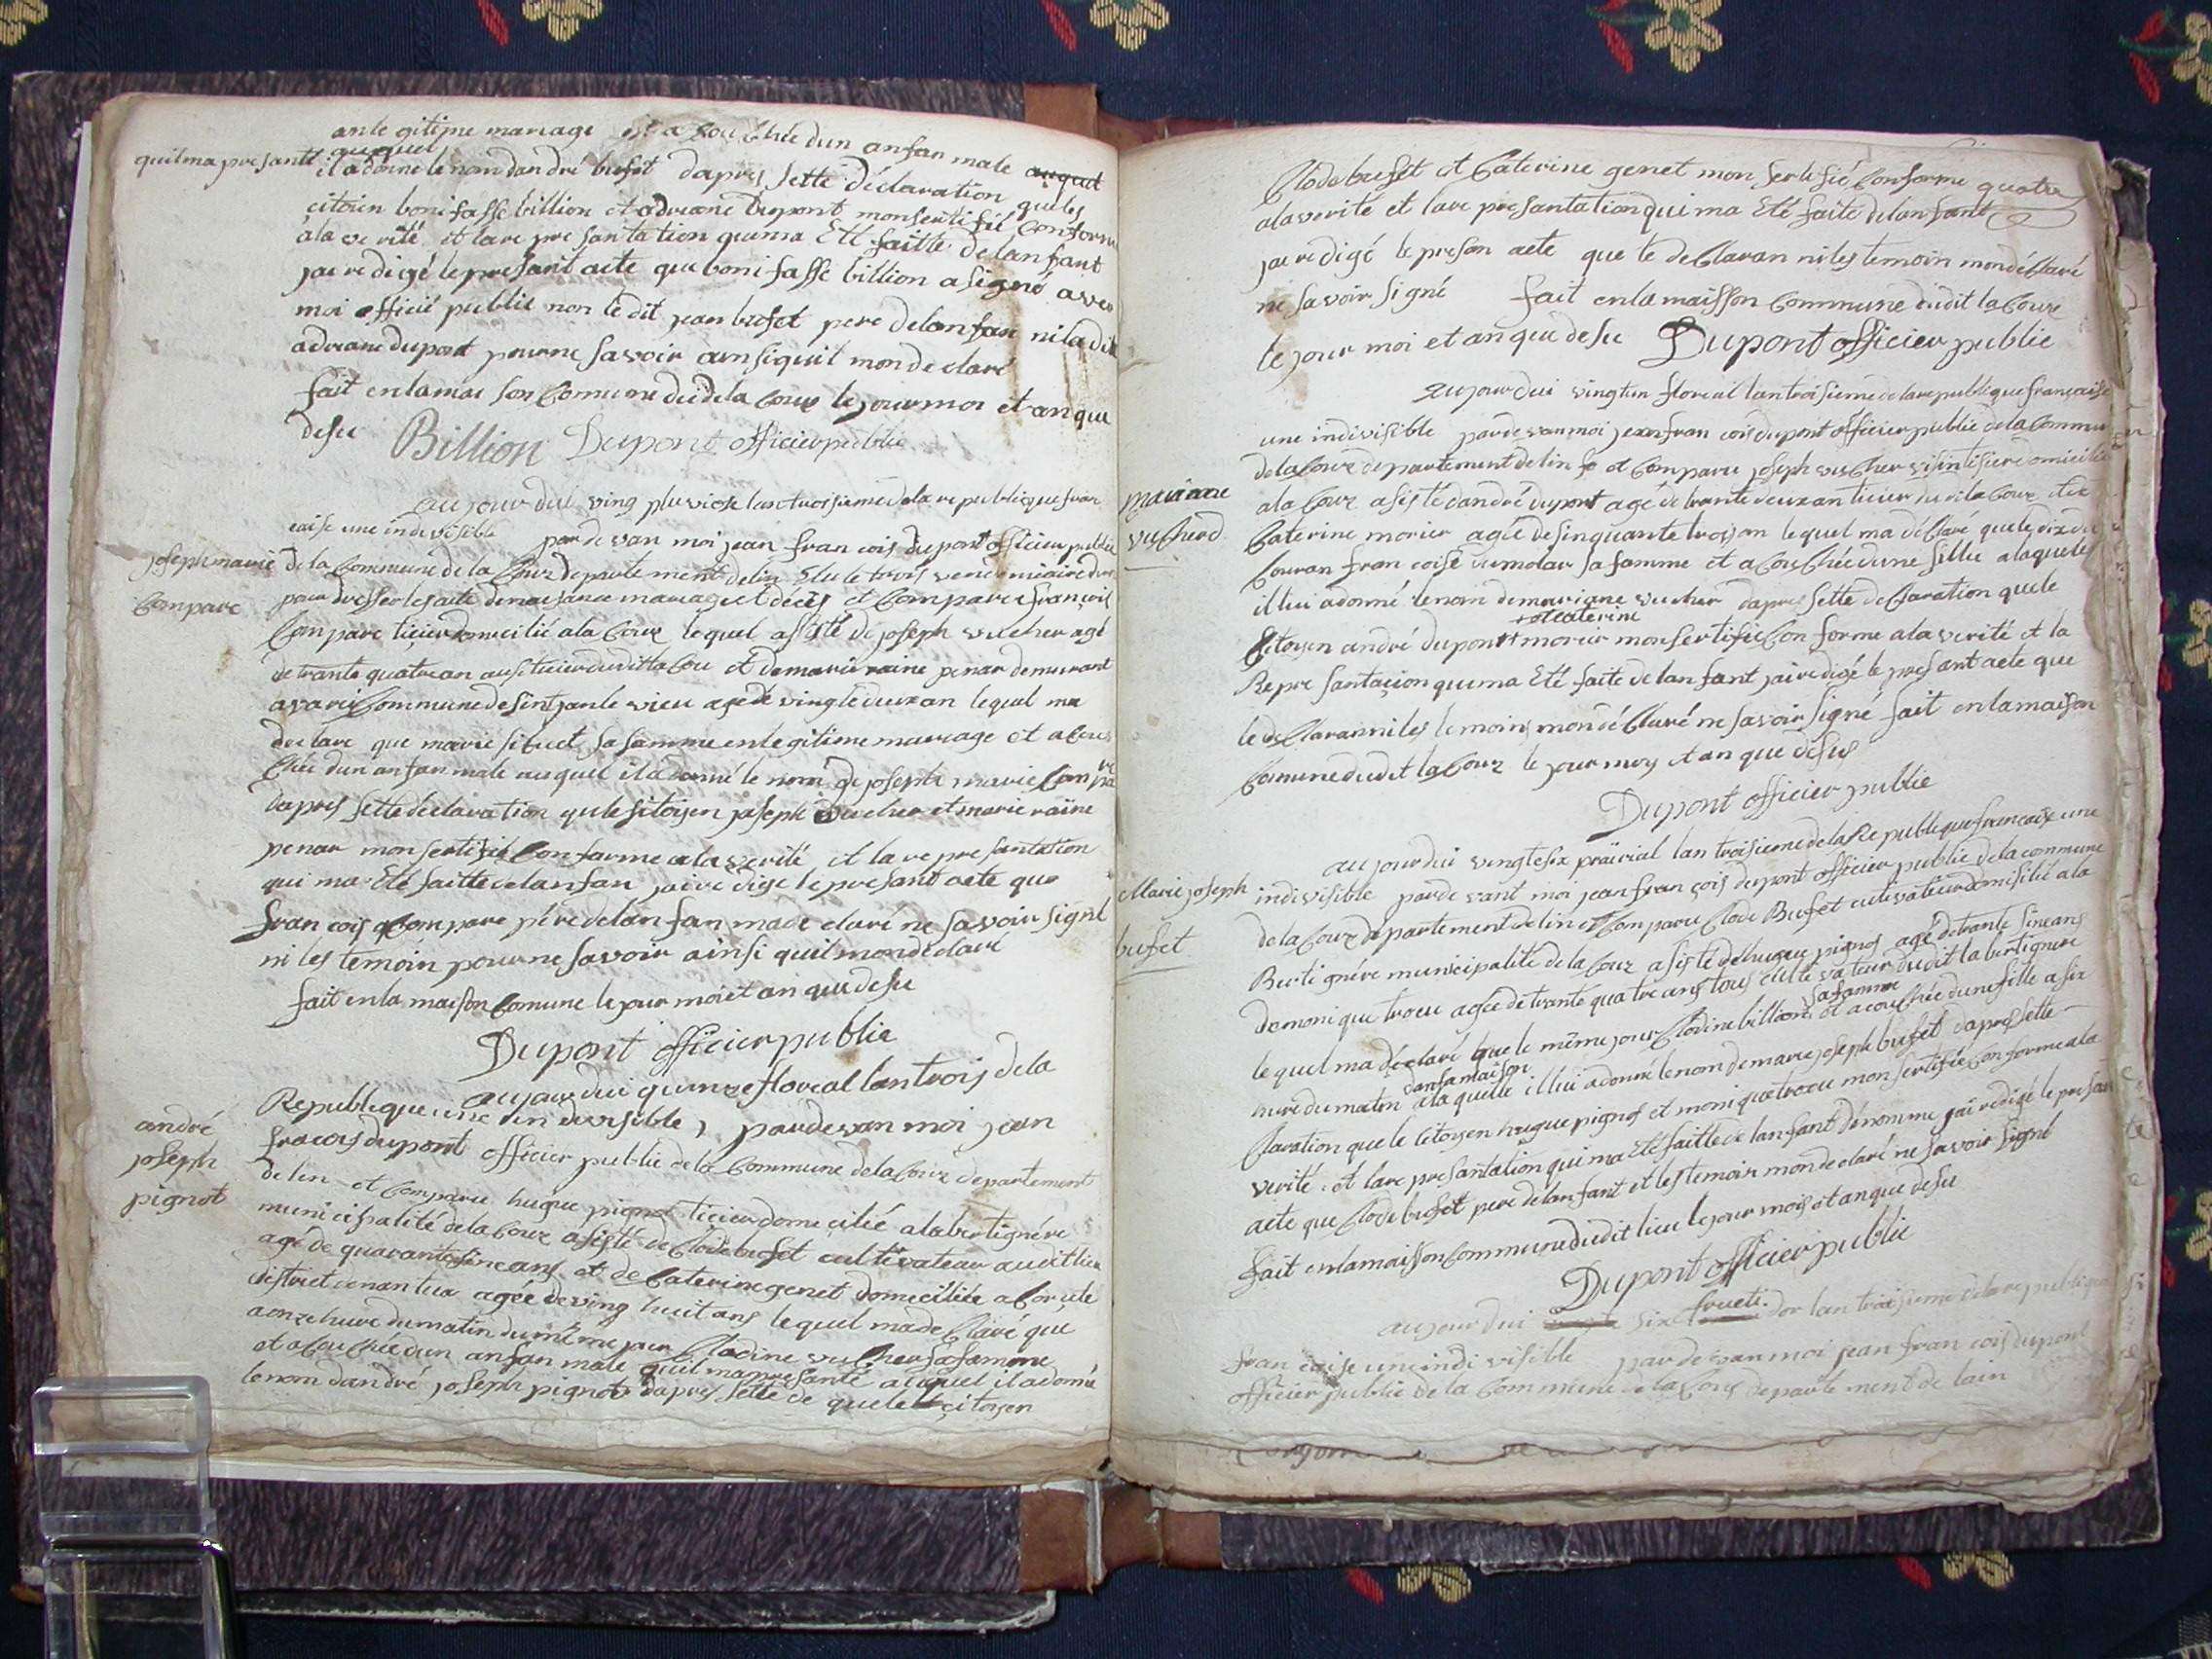 an le gitime mariage et a couchée dun anfan male auquel
quil ma presanté auquel
il a donne le nom dandré bufet dapres sette déclaration que les
citoien bonifasse billion et adriane Dupont mon sertifié conforme
a la verité et lare presantation qui ma Eté faitte de lanfant
jai redigé le presant acte que bonifasse billion a signé avec
moi officié public non le dit jean bufet pere de lanfan ni la dit
adriane dupont pour ne savoir ainsi quil mon declaré
fait en la maison comune dudit la Coux le jour moi et an que
desu Billion Dupont officier public
aujourdui ving pluviose lan troisieme de la republique fran
caise une indivisible par devan moi jean fran cois dupont officier public
joseph marie
compare
de la commune de la Coux departement de lin Elu le trois vendemiaire
pour dresser les acte de naisance mariage et décès et compareu françois
Compare ticier domicilié a la Coux lequel assisté de joseph vucher agé
de trante quatre an ausi ticier dudit la Cou et de marie raine penar demurant
a varei commune de sint jan le vieu agée de vingt deux an lequel ma
declare que marie sibuet sa famme en legitime mariage et a cou
chée dun anfan male auquel il a donné le nom de joseph marie Compare
dapres sette declaration que le sitoyen joseph vucher et marie raine
penar mon sertifié conforme a la verité et la re presantation
qui ma Eté faitte de lanfan jai redige le presant acte que
fran cois Compare père de lanfan ma declaré ne savoir signé
ni les temoin pour ne savoir ainsi quil mon declaré
fait en la maison comune le jour moi et an que desu
Dupont officier public
aujourdui quinze floreal lan trois de la
andré
joseph
pignot
Republique une indivisible, par devan moi jean
francois dupont officier public de la commune de la Coux departement
de lin et compareu hugue pignot ticier domecilié a la bertignére
municipalité de la Coux asisté de Clode bufet cultivateur audit lieu
agé de quarante sinc ans et de Caterine genet domeciliée a Corcele
district de nantua agée de ving huit ans lequel ma de Claré que
a onze hure du matin du méme jour Clodine vucher sa famme
et a Couchée dun anfan male quil ma presanté auquel il a donné
le nom dandré joseph pignot dapres sette de que le citoyen
Clode bufet et Caterine genet mon sertifié conforme
a la verité et lare presantation qui ma Eté faite de lanfant
jai redigé le presan acte que le de Claran ni les temoin mon déClaré
ne savoir signé fait en la maisson commune dudit la Coux
le jour moi et an que desu Dupont officier public
aujourdui vingt un floreal lan troisieme de la republique française
une indivisible par devan moi jean fran cois dupont officier public de la commu
mariane
vucherd
de la Coux departement de lin et compareu joseph vucher domicilié
a la Coux asisté dandré dupont agé de trante deux an ticier dudit la Coux et de
Caterine morier agée de sinquante trois an lequel ma déClaré que le dix du
Couran fran coise dumolar sa famme et a Couchée dune fillie a laquelle
il lui a donné le nom de mariane vucher dapres sette de Claration que le
+ et caterine
Citoyen andré dupont + morier mon sertifié conforme a la verité et la
Repre santacion qui ma Eté faite de lanfant jai redigé le presant acte que
le de Claran ni les temoins mon déClaré ne savoir signé fait en la maison
Comune dudit la Coux le jour moy et an que desus
Dupont officier public
au jourdui vingt six prairial lan troisieme de la Republique francaise une
Marie joseph
bufet
indivisible par de vant moi jean fran çois dupont officier public de la commune
de la Coux departement de lin et compareu Clode Bufet cultivateur domisilié a la
Berti gnére municipalité de la Coux asisté de hugue pignot agé de trante sinc ans
demonique trocu agée de trante quatre ans tous cultivateur dudit la bertignere
lequel ma déclaré que le même jour Clodine billion sa famme et a couchée dune fille a six
hure du matin dans sa maison a la quelle il lui a donné le nom de marie joseph bufet dapres sette
Claration que le Citoyen hugue pignot et monique trocu mon sertifié conforme a la
verité et lare presantation qui ma Eté faitte de lanfant denomme jai redigé le presan
acte que Clode bufet pere de lanfant et les temoin mon declaré ne savoir signé
fait en la maisson commune dudit lieu le jour mois et an que desu
Dupont officier public
aujourdui six fructidor lan troisieme de la republique
fran caise une indi visible par devan moi jean fran cois dupont
officier public de la commune de la Coux departement de lain